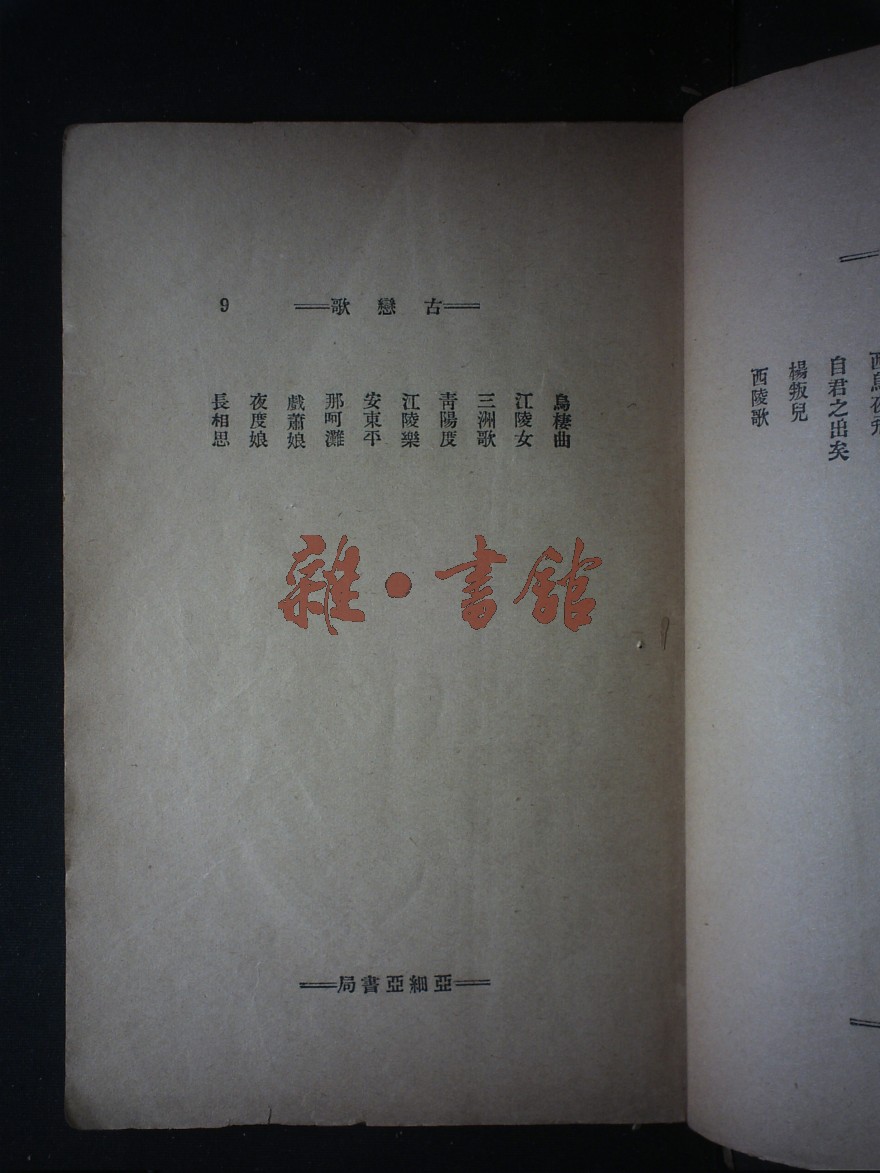 自君之出矣
楊叛兒
西陵歌
古戀歌
9
烏棲曲
江陵女
三洲歌
青陽度
江陵樂
安東平
那呵灘
戲蕭娘
夜度娘
長相思
雜•書館
亞細亞書局